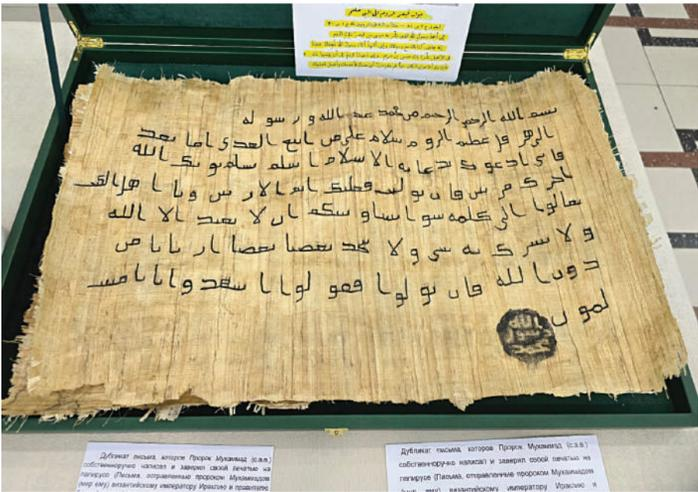 بسم الله الرحمن الرحيم من محمد عبد الله و رسوله
الى هرقل عظيم الروم سلام على من اتبع الهدى اما بعد
فاني ادعوك بدعاية الاسلام اسلم تسلم يوتك الله
اجرك مرتين فان توليت فعليك اثم الاريسين ويا اهل الكتب
تعالوا الى كلمة سوا بيننا وبينكم ان لا نعبد الا الله
و لا نشرك به شي و لا يتخذ بعضنا بعضا اربابا من
دون الله فان تولوا فقولوا اشهدوا بانا مس
لمون
الله
رسول
محمد
Дубликат письма, которое Пророк Мухаммад (с.а.в.)
собственноручно написал и заверил своей печатью на
папирусе (Письма, отправленные пророком Мухаммадом
(мир ему) византийскому императору Ираклию и правителю
Дубликат письма, которое Пророк Мухаммад (с.а.в.)
собственноручно написал и заверил своей печатью на
папирусе (Письма, отправленные пророком Мухаммадом
(мир ему) византийскому императору Ираклию и